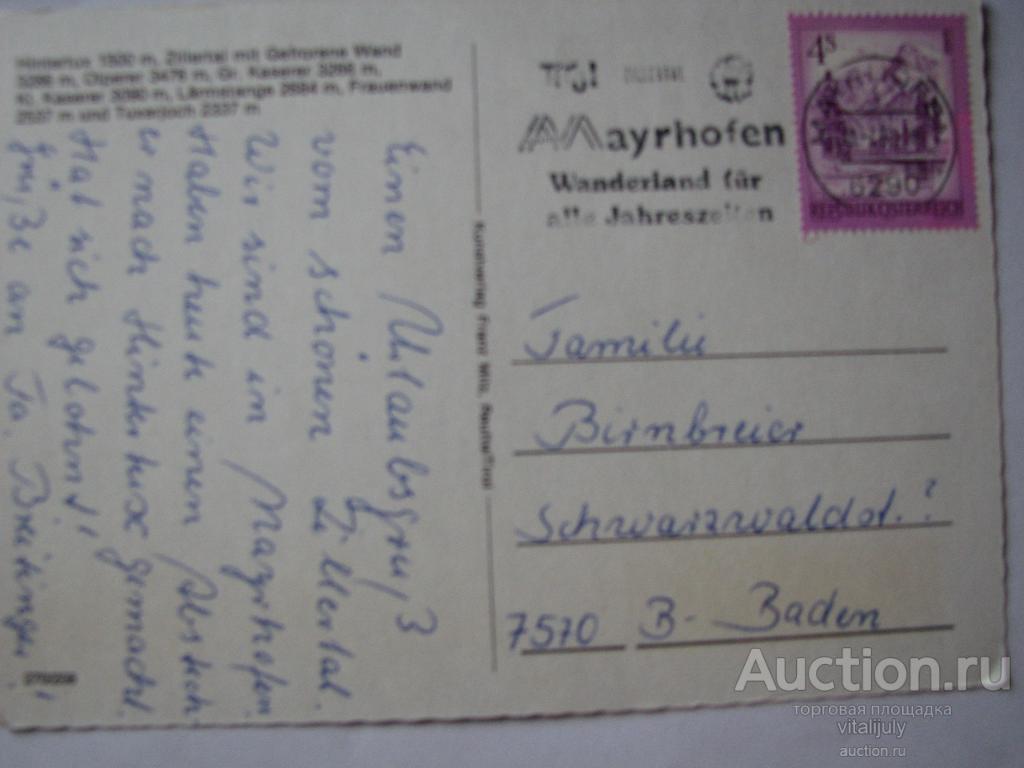 Hintertux 1500 m, Zillertal mit Gefrorene Wand
3286 m, Olperer 3476 m, Gr. Kaserer 3266 m,
Kl. Kaserer 3090 m, Lärmstange 2684 m, Frauenwand
2537 m und Tuxerjoch 2337 m
Einen Urlaubsgruß
vom schönen Zillertal.
Wir sind in Mayrhofen
Haben heute einen Abstech-
er nach Hintertux gemacht.
Hat sich gelohnt!
Grüße an Fa.
270/208
Kunstverlag Franz Milz, Reutte/Tirol
Tirol
Mayrhofen
Wanderland für
alle Jahreszeiten
4S
6290
REPUBLIK ÖSTERREICH
Familie
Birnbreier
Schwarzwaldst.?
7570 B-Baden
Auction.ru
торговая площадка
vitalijuly
auction.ru